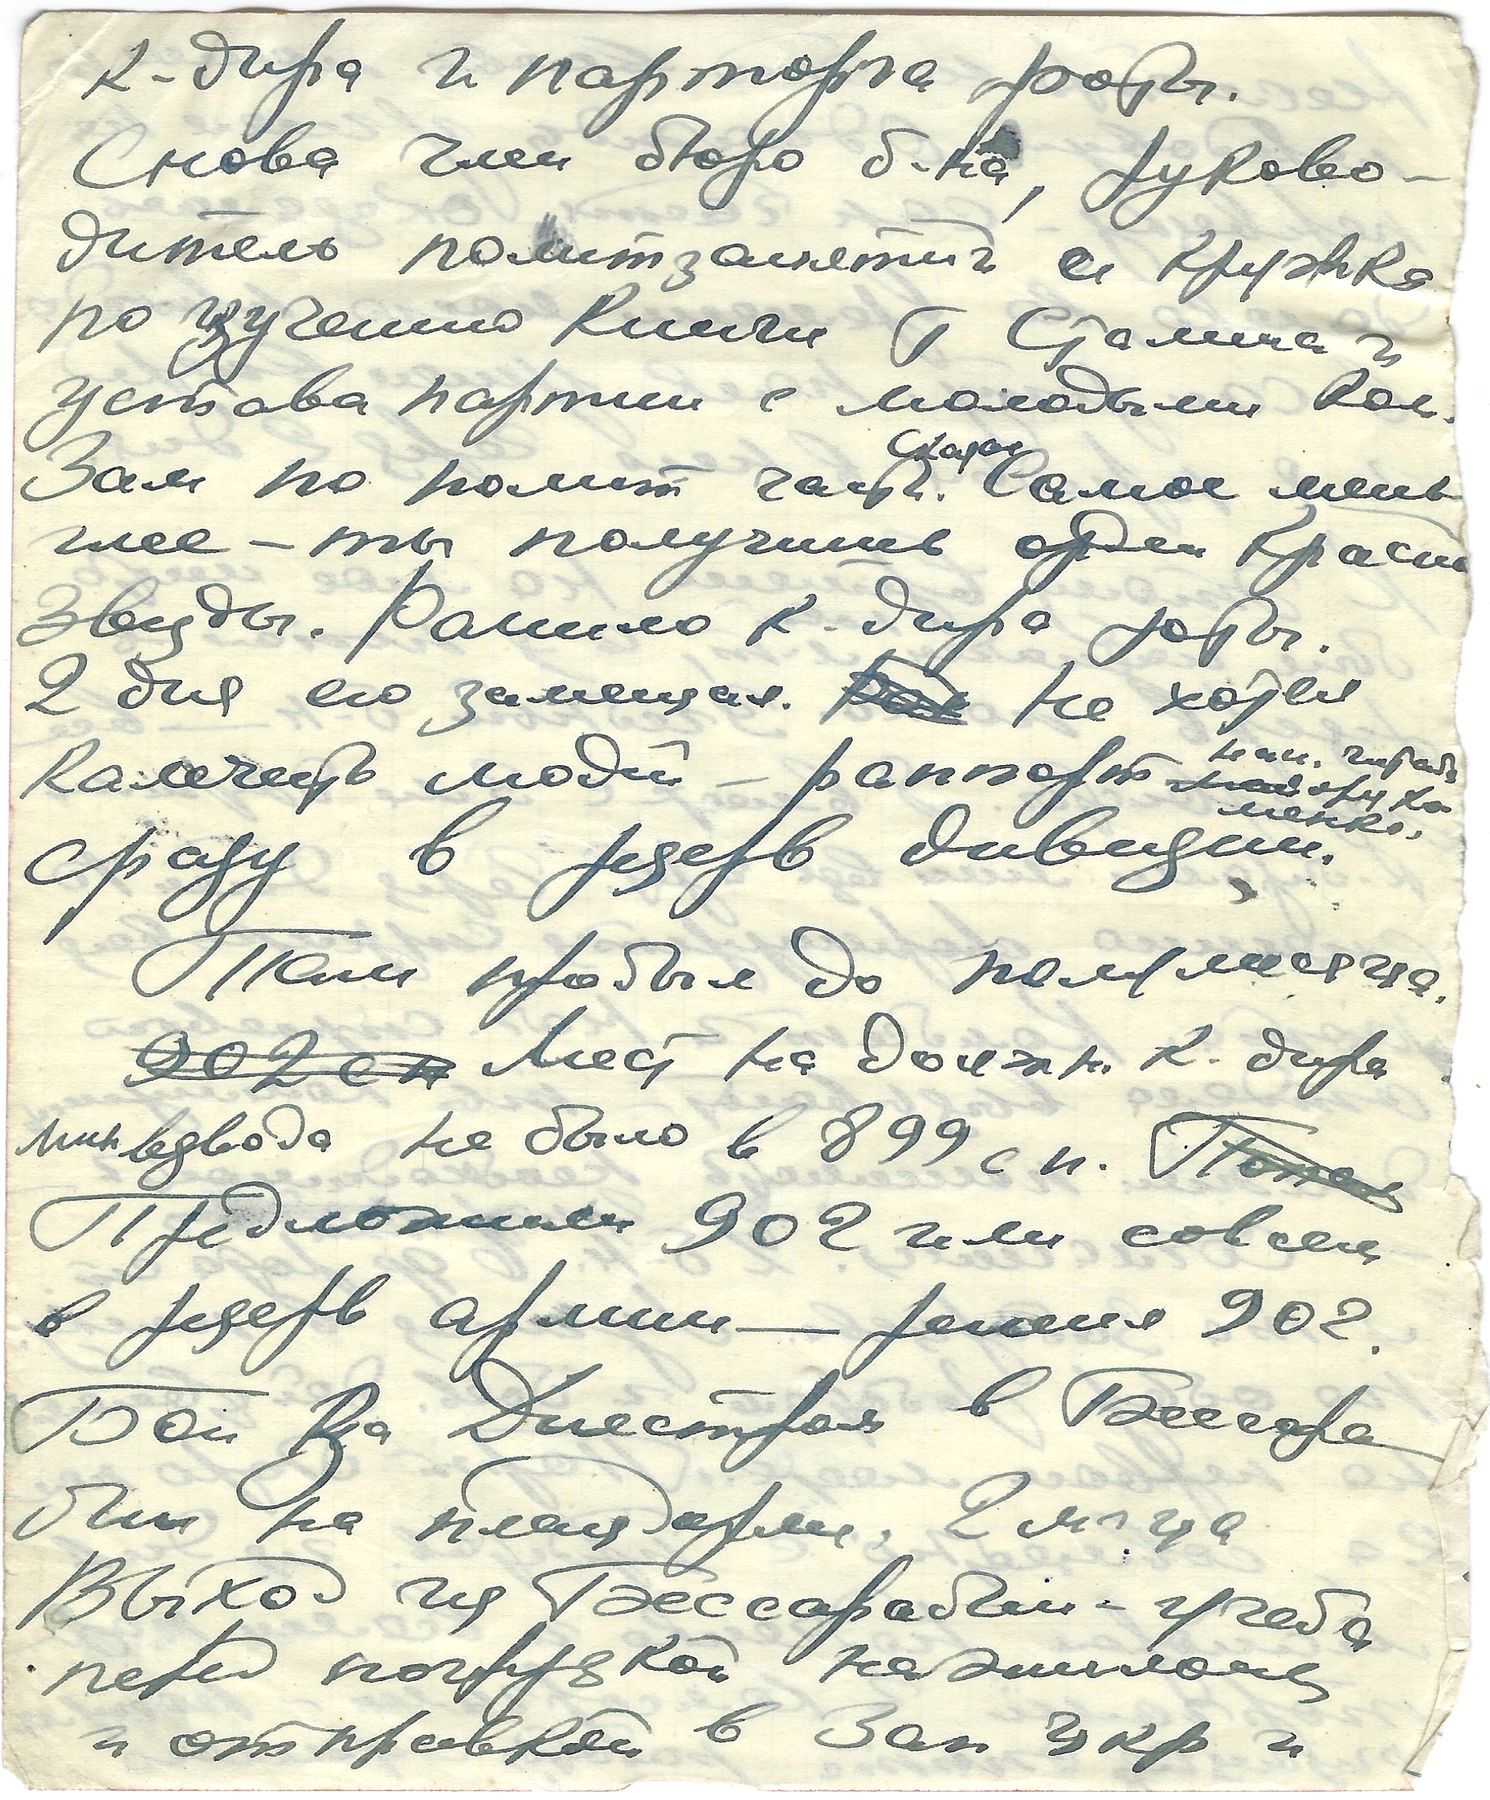 к-дира и парторга роты.
Снова член бюро б-на, руково-
дитель политзанятий и кружка
по изучению книги т Сталина и
устава партии с молодыми ком.
Зам по полит части. Сказал Самое мень
шее – ты получишь орден Красн
звезды. Ранило к-дира роты.
2 дня его замещал. Не хотел
калечить людей – рапорт
сразу в резерв дивизии.
Там пробыл до полумесяца.
902 сп Мест на должн. к-дира
мин взвода не было в 899 сп.
Предложили 902 или совсем
в резерв армии — решил 902.
Бои за Днестром в Бессара
бии на плацдарме, 2 м-ца
Выход из Бессарабии – учеба
перед погрузкой на эшелоны
и отправкой в Зап Укр и